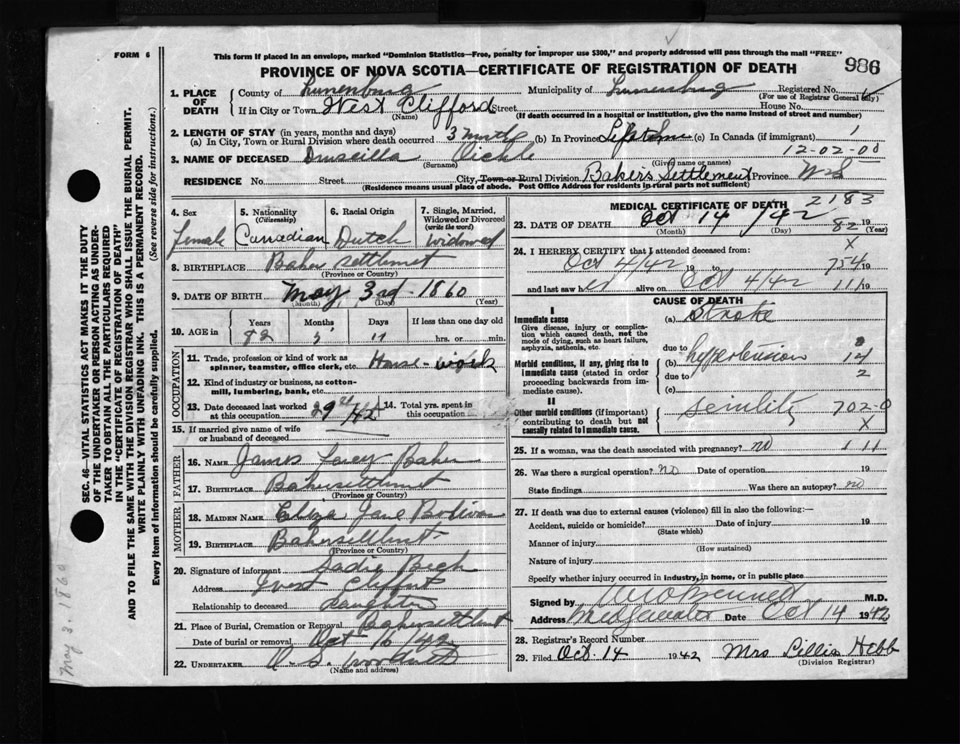 FORM 6
This form if placed in an envelope, marked "Dominion Statistics—Free, penalty for improper use $300," and properly addressed will pass through the mail "FREE"
PROVINCE OF NOVA SCOTIA—CERTIFICATE OF REGISTRATION OF DEATH
986
1. PLACE OF DEATH
County of Lunenburg Municipality of Lunenburg Registered No.
(For use of Registrar General only)
If in City or Town West Clifford Street House No.
(Name) (If death occurred in a hospital or institution, give the name instead of street and number)
2. LENGTH OF STAY (in years, months and days)
(a) In City, Town or Rural Division where death occurred 3 mnth (b) In Province Lifetime (c) In Canada (if immigrant) 1
12-02-00
3. NAME OF DECEASED Druscilla
(Surname) (Given name or names)
RESIDENCE No. Street City, Town or Rural Division Bakers Settlement Province N S
(Residence means usual place of abode. Post Office Address for residents in rural parts not sufficient)
4. Sex female
5. Nationality (Citizenship) Canadian
6. Racial Origin Dutch
7. Single, Married, Widowed or Divorced (write the word) widowed
8. BIRTHPLACE Baker settlment
(Province or Country)
9. DATE OF BIRTH May 3rd 1860
(Month) (Day) (Year)
10. AGE in Years Months Days If less than one day old
82 5 11 hrs. or min.
OCCUPATION
11. Trade, profession or kind of work as spinner, teamster, office clerk, etc. House-work
12. Kind of industry or business, as cotton-mill, lumbering, bank, etc.
13. Date deceased last worked at this occupation 14. Total yrs. spent in this occupation
15. If married give name of wife or husband of deceased
FATHER
16. NAME James Baker
17. BIRTHPLACE Bakersettlment
(Province or Country)
MOTHER
18. MAIDEN NAME Eliza Jane
19. BIRTHPLACE Bakersettlment
(Province or Country)
20. Signature of informant Sadie
Address West
Relationship to deceased daughter
21. Place of Burial, Cremation or Removal Bakersettlment
Date of burial or removal Oct 16 1942
22. UNDERTAKER
(Name and address)
MEDICAL CERTIFICATE OF DEATH
2183
23. DATE OF DEATH Oct 14 /42 82 19
(Month) (Day) (Year)
24. I HEREBY CERTIFY that I attended deceased from: X
Oct 4/42 19 to 754 19
and last saw h er alive on Oct 4/42 11/ 19
CAUSE OF DEATH
I
Immediate cause
Give disease, injury or complication which caused death, not the mode of dying, such as heart failure, asphyxia, asthenia, etc.
(a) Stroke
due to
Morbid conditions, if any, giving rise to immediate cause (stated in order proceeding backwards from immediate cause).
(b) hypertension
due to 2
(c)
II
Other morbid conditions (if important) contributing to death but not causally related to immediate cause.
senility 702-0
X
25. If a woman, was the death associated with pregnancy? no 1 11
26. Was there a surgical operation? no Date of operation 19
State findings Was there an autopsy? no
27. If death was due to external causes (violence) fill in also the following:—
Accident, suicide or homicide? Date of injury 19
(State which)
Manner of injury
(How sustained)
Nature of injury
Specify whether injury occurred in industry, in home, or in public place
Signed by M.D.
Address Bridgewater Date Oct 14 1942
28. Registrar's Record Number
29. Filed Oct. 14 1942 Mrs Lillis Hebb
(Division Registrar)
SEC. 46—VITAL STATISTICS ACT MAKES IT THE DUTY
OF THE UNDERTAKER OR PERSON ACTING AS UNDER-
TAKER TO OBTAIN ALL THE PARTICULARS REQUIRED
IN THE "CERTIFICATE OF REGISTRATION OF DEATH"
AND TO FILE THE SAME WITH THE DIVISION REGISTRAR WHO SHALL ISSUE THE BURIAL PERMIT.
WRITE PLAINLY WITH UNFADING INK. THIS IS A PERMANENT RECORD.
Every item of information should be carefully supplied. (See reverse side for instructions.)
May 3. 1860